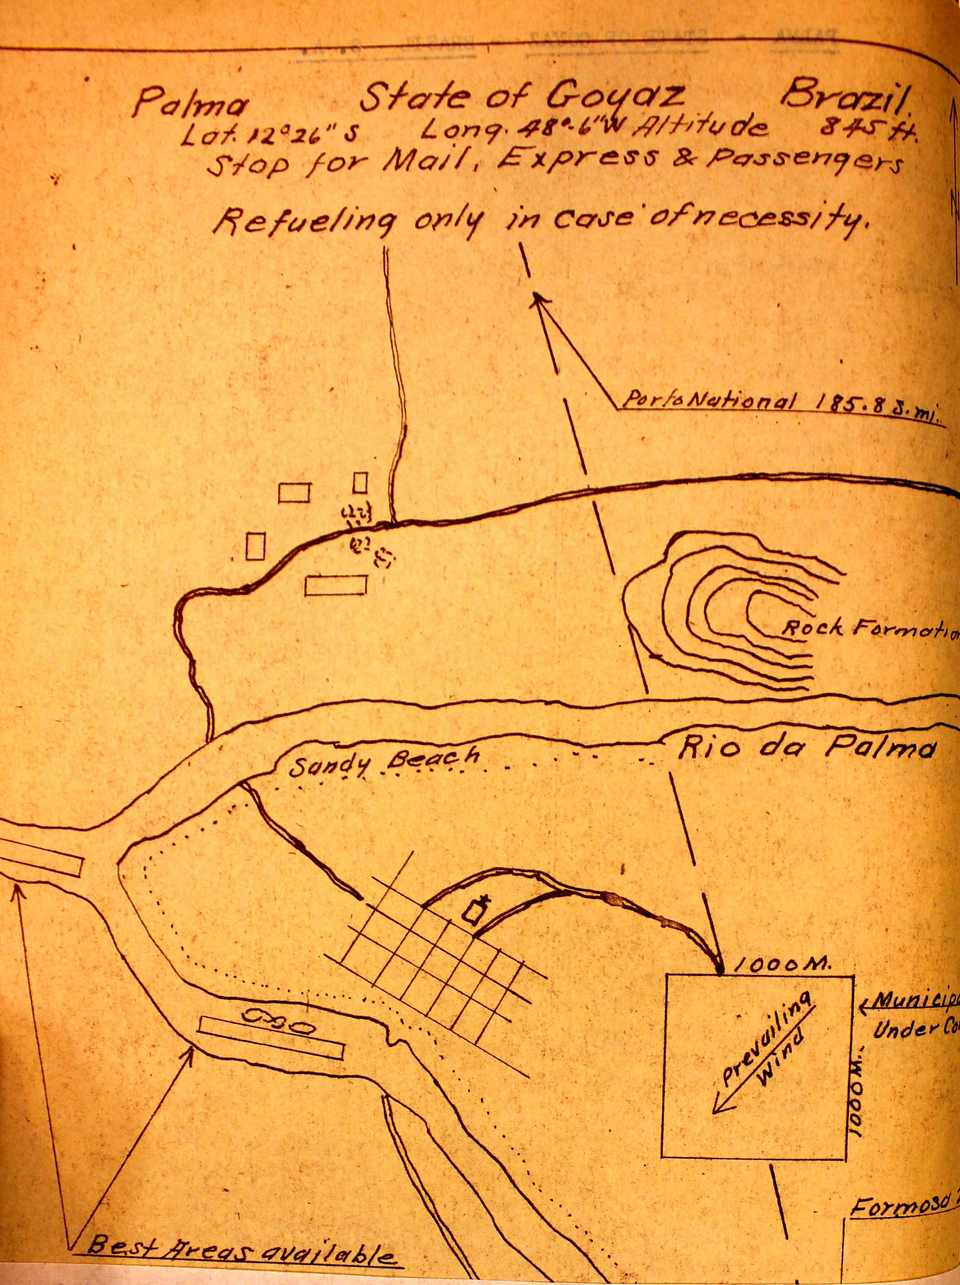 Palma State of Goyaz Brazil.
Lat. 12°26" S Long. 48°-6"W Altitude 845 ft.
Stop for Mail, Express & Passengers
Refueling only in case of necessity.
Porto National 185.8 S. mi.
Rock Formation
Rio da Palma
Sandy Beach
1000 M.
Prevailing
Wind
Under
1000 M.
Formosa
Best Areas available
N